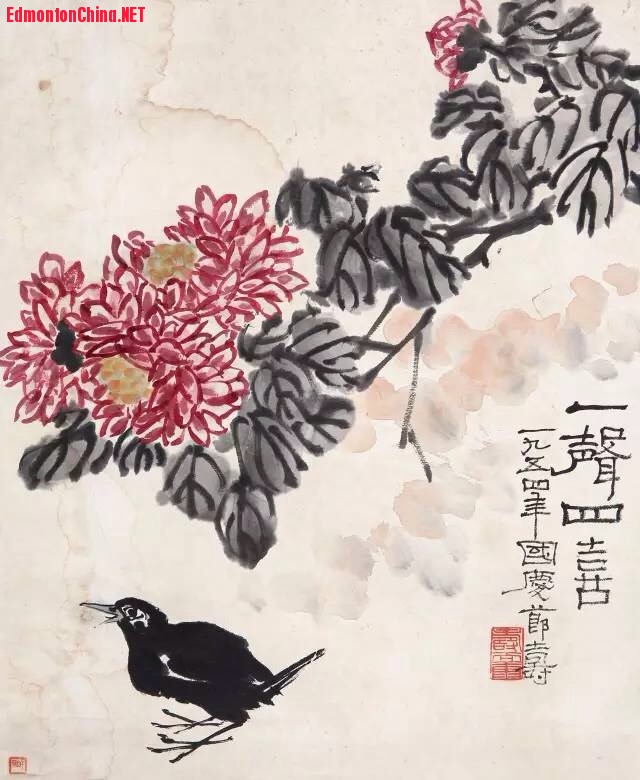 EdmontonChina.NET
一聲四喜
一九五四年國慶節壽